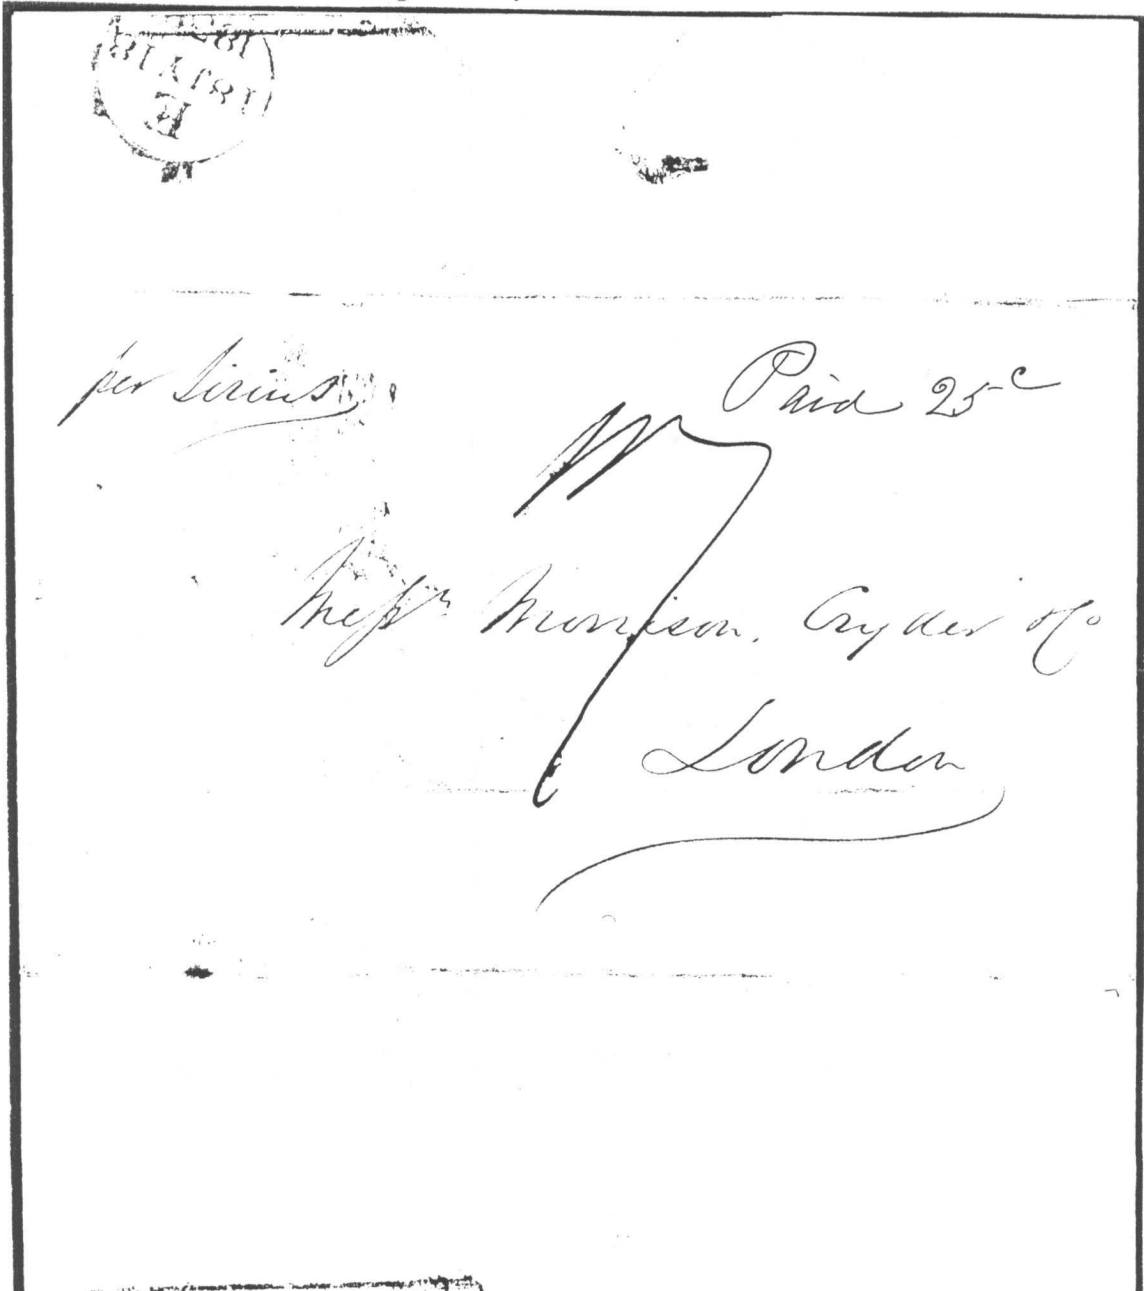 per Sirius
Paid 25c
Messrs Morrison, Cryder & Co
London